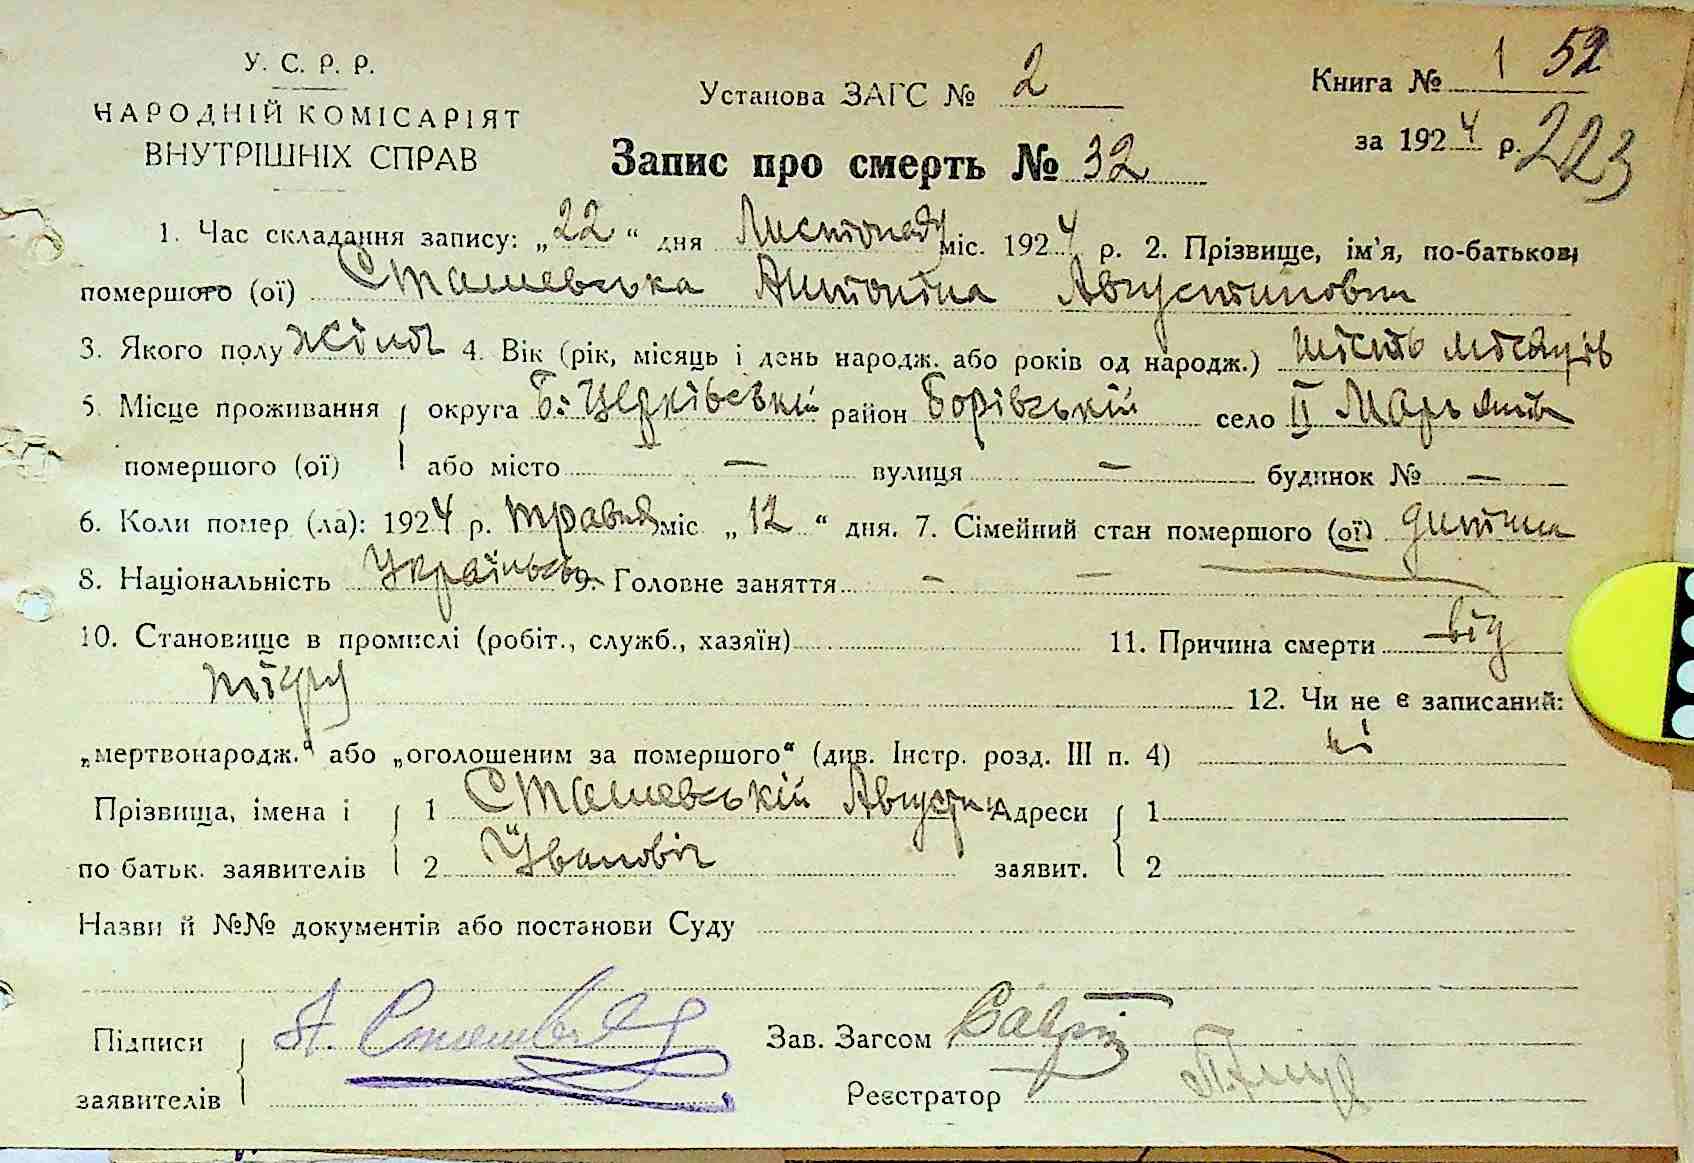 У. С. Р. Р.
НАРОДНІЙ КОМІСАРІЯТ
ВНУТРІШНІХ СПРАВ
Установа ЗАГС № 2
Книга № 1 52
за 1924 р. 223
Запис про смерть № 32
1. Час складання запису: „22“ дня Листопаду міс. 1924 р. 2. Прізвище, ім'я, по-батькові
помершого (ої) Сташевська Антоніна Августиновна
3. Якого полу жіноч 4. Вік (рік, місяць і день народж. або років од народж.) шість місяців
5. Місце проживання округа Б. Церківській район Борівській село II Марьянів
помершого (ої) або місто — вулиця — будинок № —
6. Коли помер (ла): 1924 р. травня міс. „12“ дня. 7. Сімейний стан помершого (ої) дитина
8. Національність Українськ 9. Головне заняття — —
10. Становище в промислі (робіт., служб., хазяїн) 11. Причина смерти від
12. Чи не є записаний:
„мертвонародж.“ або „оголошеним за помершого“ (див. Інстр. розд. III п. 4) ні
Прізвища, імена і 1 Сташевській Августин Адреси 1
по батьк. заявителів 2 Ївановіч заявит. 2
Назви й №№ документів або постанови Суду
Підписи А. Сташевский Зав. Загсом
заявителів Реєстратор